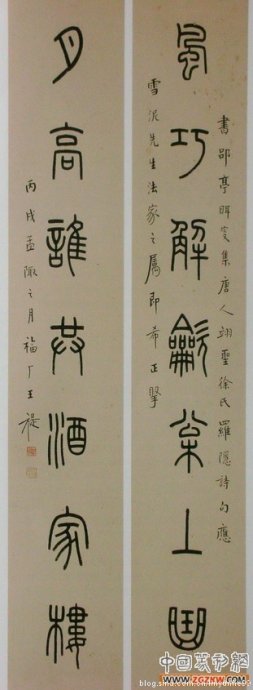 書郘亭眲叟集唐人翊聖徐氏羅隱詩句應
風巧解龡枀上曲
雪泥先生法家之屬即希正擘
月高誰共酒家樓
丙戌孟陬之月福厂王禔
中國篆刻網
www.ZGZKW.com